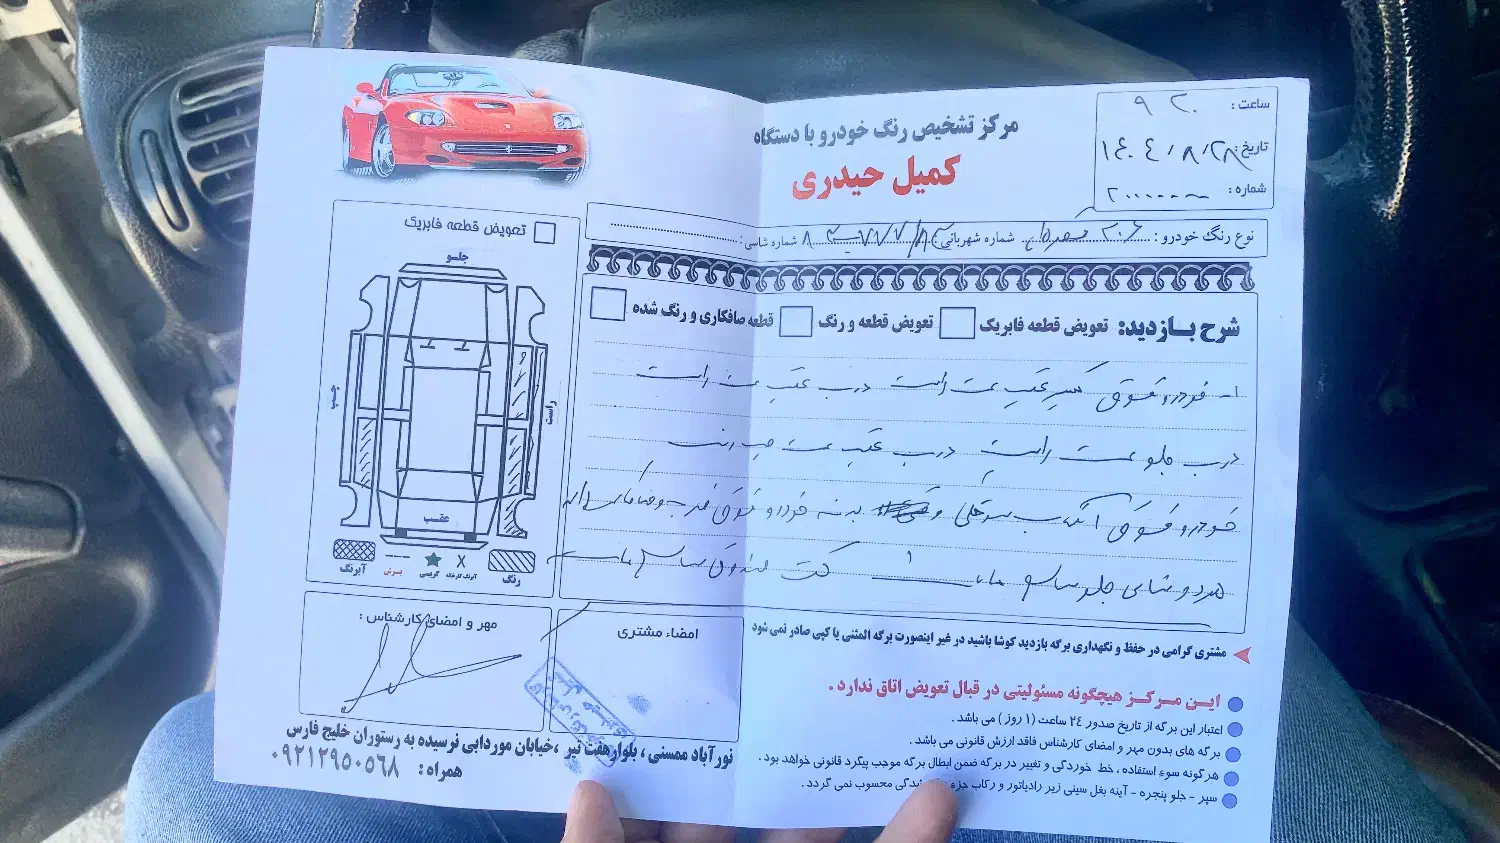 ساعت : ۹ ۲۰
تاریخ: ۱۴۰۴/۸/۲۸
شماره : ۲۰۰۰۰۰۰
مرکز تشخیص رنگ خودرو با دستگاه
کمیل حیدری
نوع رنگ خودرو : ۲۰۶ شماره شهربانی: شماره شاسی:
تعویض قطعه فابریک
شرح بـازدید: تعویض قطعه فابریک تعویض قطعه و رنگ قطعه صافکاری و رنگ شده
۱- خودرو فوق گلگیر عقب سمت راست درب عقب سمت راست
درب جلو سمت راست درب عقب سمت چپ رنگ
خودرو فوق
هر دو شاسی جلو سالم کف صندوق سالم
جلـو
چپ
راست
عقـب
رنگ
آبرنگ کارخانه
گریسی
بـرش
آبرنگ
مهر و امضای کارشناس :
امضاء مشتری
مشتری گرامی در حفظ و نگهداری برگه بازدید کوشا باشید در غیر اینصورت برگه المثنی یا کپی صادر نمی شود
این مـرکـز هیچگونه مسئولیتی در قبال تعویض اتاق ندارد .
اعتبار این برگه از تاریخ صدور ۲۴ ساعت (۱ روز ) می باشد .
برگه های بدون مهر و امضای کارشناس فاقد ارزش قانونی می باشد .
هرگونه سوء استفاده ، خط خوردگی و تغییر در برگه ضمن ابطال برگه موجب پیگرد قانونی خواهد بود .
سپر - جلو پنجره - آینه بغل سینی زیر رادیاتور و رکاب جزء محسوب نمی گردد .
نورآباد ممسنی ، بلوار هفت تیر ،خیابان موردابی نرسیده به رستوران خلیج فارس
همراه : ۰۹۲۱۳۹۵۰۵۶۸